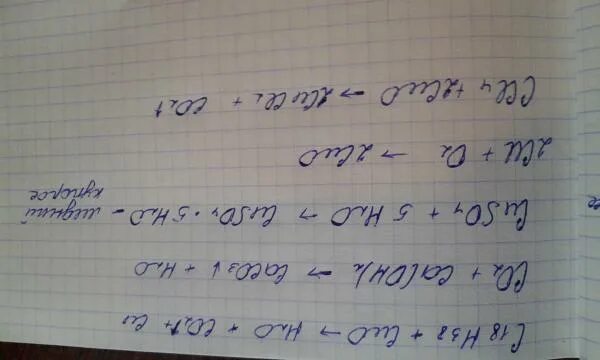 C₁₈H₃₈ + CuO → H₂O + CO₂↑ + Cu
CO₂ + Ca(OH)₂ → CaCO₃↓ + H₂O
CuSO₄ + 5H₂O → CuSO₄·5H₂O - медный
купорос
2Cu + O₂ → 2CuO
CCl₄ + 2CuO → 2CuCl₂ + CO₂↑